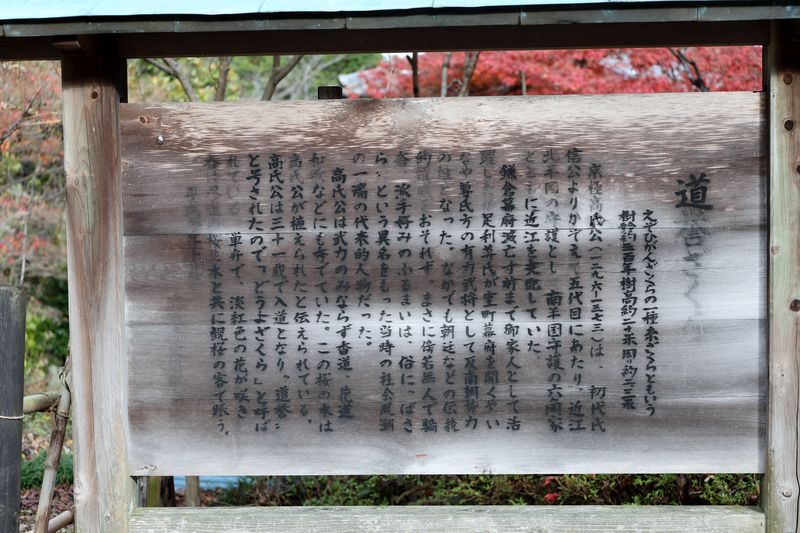 道誉ざくら
えどひがんざくらの一種糸ざくらともいう
樹齢約三百年樹高約二十米周り約二・三米
京極高氏公(一二九六―一三七三)は、初代氏
信公よりかぞえて五代目にあたり、近江
北半国の守護とし、南半国守護の六角家
とともに近江を支配していた。
鎌倉幕府滅亡寸前まで御家人として活
躍し 足利尊氏が室町幕府を開くやい
なや尊氏方の有力武将として反南朝勢力
の柱となった。なかでも朝廷などの伝統
的 おそれず、まさに傍若無人で驕
奢 派手好みのふるまいは、俗に"ばさ
ら"という異名をもった当時の社会風潮
の一端の代表的人物だった。
高氏公は武力のみならず香道 花道
和歌などにも秀でていた。この桜の木は
高氏公が植えられたと伝えられている。
高氏公は三十一歳で入道となり"道誉"
と号されたので「どうよざくら」と呼ば
れてい 単弁で、淡紅色の花が咲き
春は 桜 水と共に観桜の客で賑う。